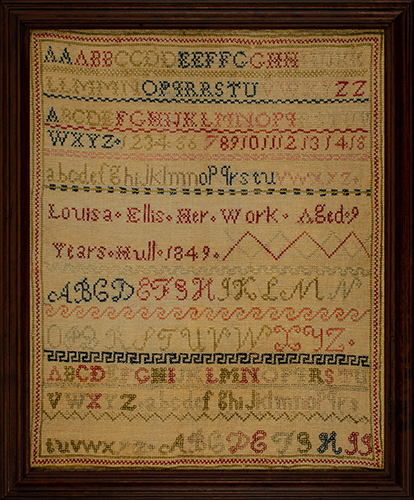 AAABBCCDDEEFFGGHH
LLMMNNOPQRRSTU ZZ
ABCDEFGHIJKLMNOPQ
WXYZ 7 8 9 10 11 12 13 14 15
abcdefghiJklmnopqrstuvwxyz
Louisa Ellis Her Work Aged 9
Years Hull 1849
ABCDEFGHIJKLMN
OPQRSTUVWXYZ
ABCDEFGHIJKLMNOPQRSTU
VWXYZ abcdefghiJklmnopqrs
tuvwxyz ABCDEFGHIJ